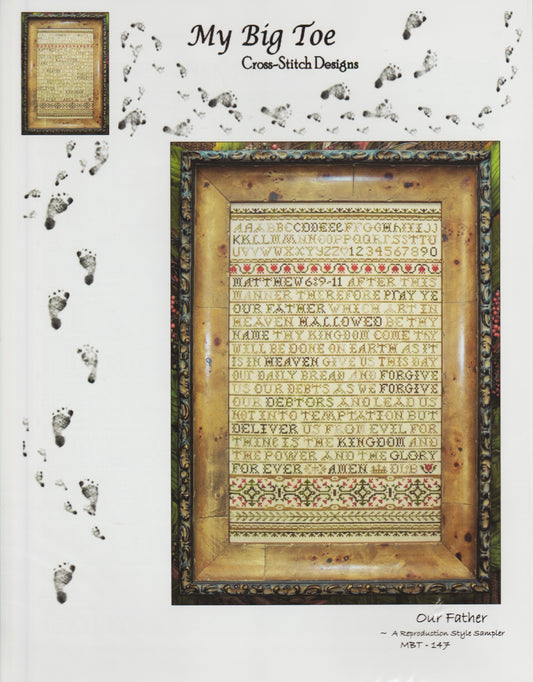 My Big Toe
Cross-Stitch Designs
KKLLMMNNOOPPQQRRSSTTU
1234567890
MATTHEW 6:9-11 AFTER THIS
MANNER THEREFORE PRAY YE
OUR FATHER WHICH ART IN
HEAVEN HALLOWED BE THY
NAME THY KINGDOM COME THY
WILL BE DONE ON EARTH AS IT
IS IN HEAVEN GIVE US THIS DAY
OUR DAILY BREAD AND FORGIVE
US OUR DEBTS AS WE FORGIVE
OUR DEBTORS AND LEAD US
NOT INTO TEMPTATION BUT
DELIVER US FROM EVIL FOR
THINE IS THE KINGDOM AND
THE POWER AND THE GLORY
FOR EVER AMEN
Our Father
~ A Reproduction Style Sampler
MBT - 147